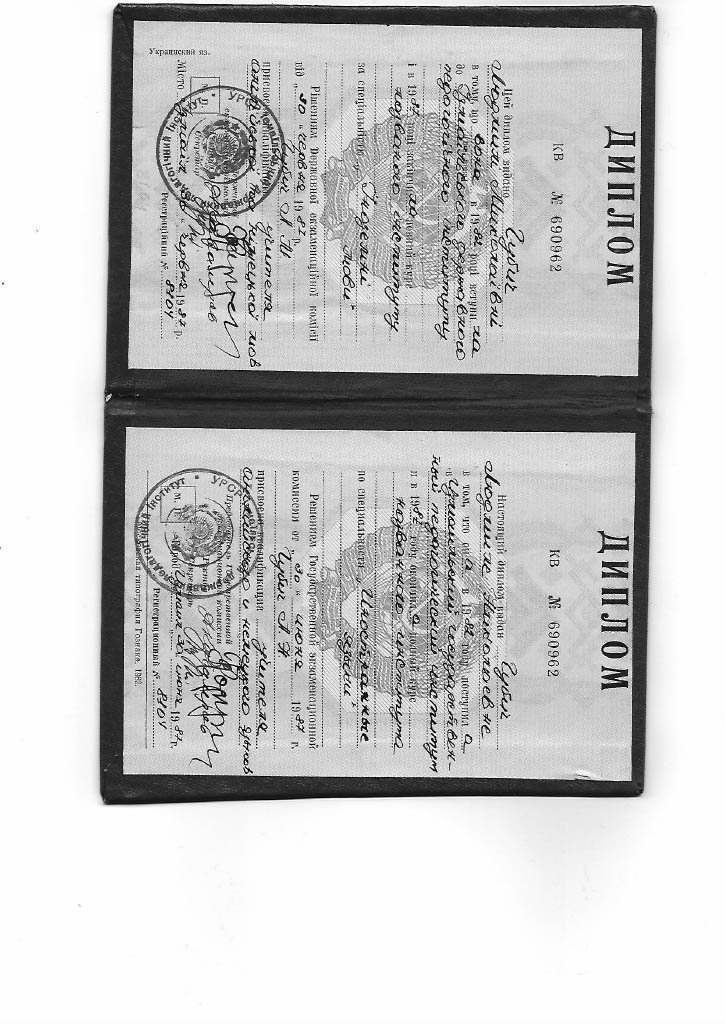 ДИПЛОМ
КВ № 690962
Цей диплом видано Губич
Людмилі Миколаївні
в тому, що вона в 1982 році вступила
до Уманського державного
педагогічного інституту
і в 1987 році закінчила повний курс
названого інституту
за спеціальністю „Іноземні
мови“
Рішенням Державної екзаменаційної комісії
від „30“ червня 1987 р.
Губич Л М
присвоєно кваліфікацію учителя
англійської і німецької мов
М. П.
Місто Умань 30 червня 1987 р.
Реєстраційний № 8104
Украинский яз.
ДИПЛОМ
КВ № 690962
Настоящий диплом выдан Губич
Людмиле Николаевне
в том, что она в 1982 году поступила
в Уманский государствен-
ный педагогический институт
и в 1987 году окончила полный курс
названного института
по специальности „Иностранные
языки“
Решением Государственной экзаменационной
комиссии от „30“ июня 1987 г.
Губич Л Н
присвоена квалификация учителя
английского и немецкого языков
Председатель Государственной
экзаменационной комиссии
Ректор
Секретарь
М. П.
Город Умань 30 июня 1987 г.
Регистрационный № 8104
Московская типография Гознака. 1982.